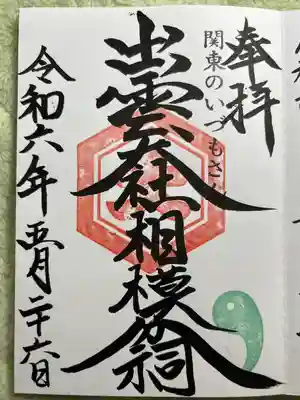 奉拝
関東のいづもさん
出雲大社相模分祠
令和六年五月二十六日